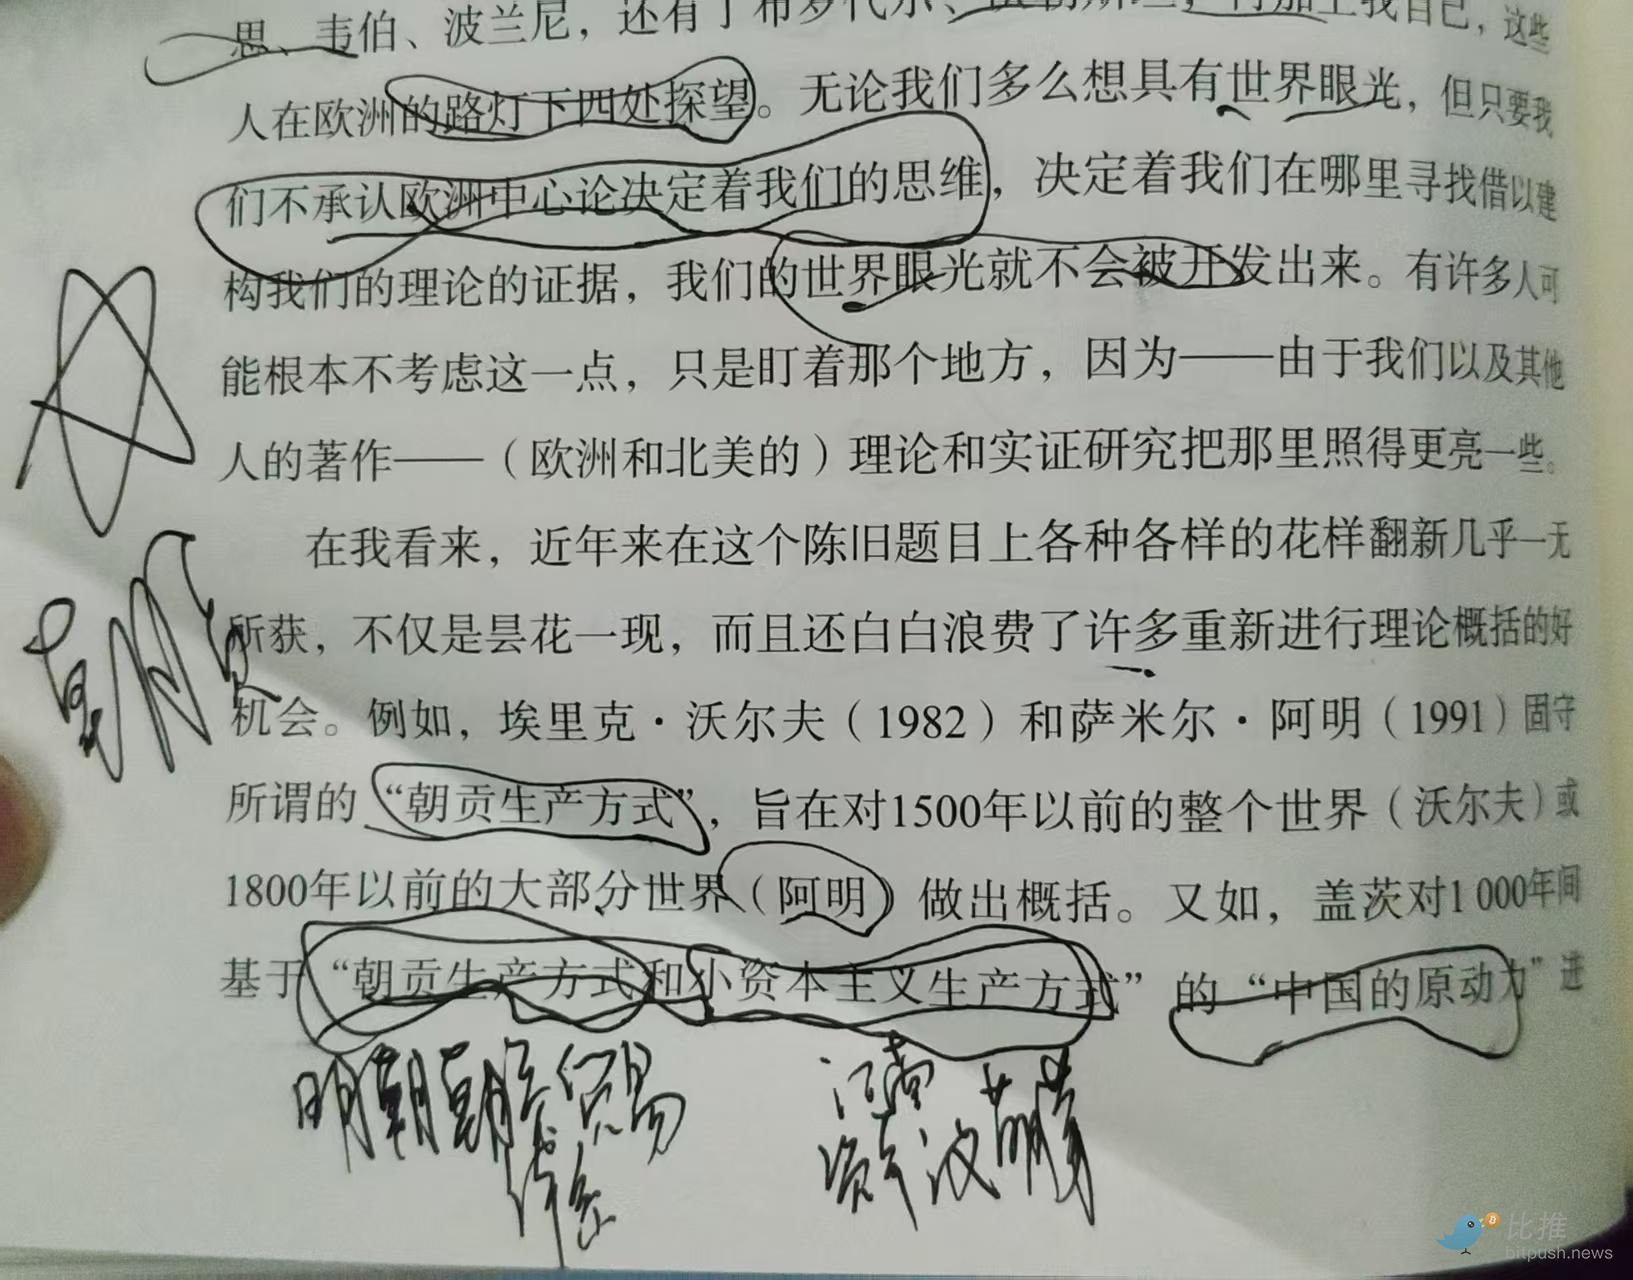 思、韦伯、波兰尼，还有了布罗代尔、沃勒斯坦，再加上我自己，这些
人在欧洲的路灯下四处探望。无论我们多么想具有世界眼光，但只要我
们不承认欧洲中心论决定着我们的思维，决定着我们在哪里寻找借以建
构我们的理论的证据，我们的世界眼光就不会被开发出来。有许多人可
能根本不考虑这一点，只是盯着那个地方，因为——由于我们以及其他
人的著作——（欧洲和北美的）理论和实证研究把那里照得更亮一些。
在我看来，近年来在这个陈旧题目上各种各样的花样翻新几乎一无
所获，不仅是昙花一现，而且还白白浪费了许多重新进行理论概括的好
机会。例如，埃里克·沃尔夫（1982）和萨米尔·阿明（1991）固守
所谓的“朝贡生产方式”，旨在对1500年以前的整个世界（沃尔夫）或
1800年以前的大部分世界（阿明）做出概括。又如，盖茨对1 000年间
基于“朝贡生产方式和小资本主义生产方式”的“中国的原动力”进
朝
明朝朝 贸易
江南
资本 萌
比推
bitpush.news